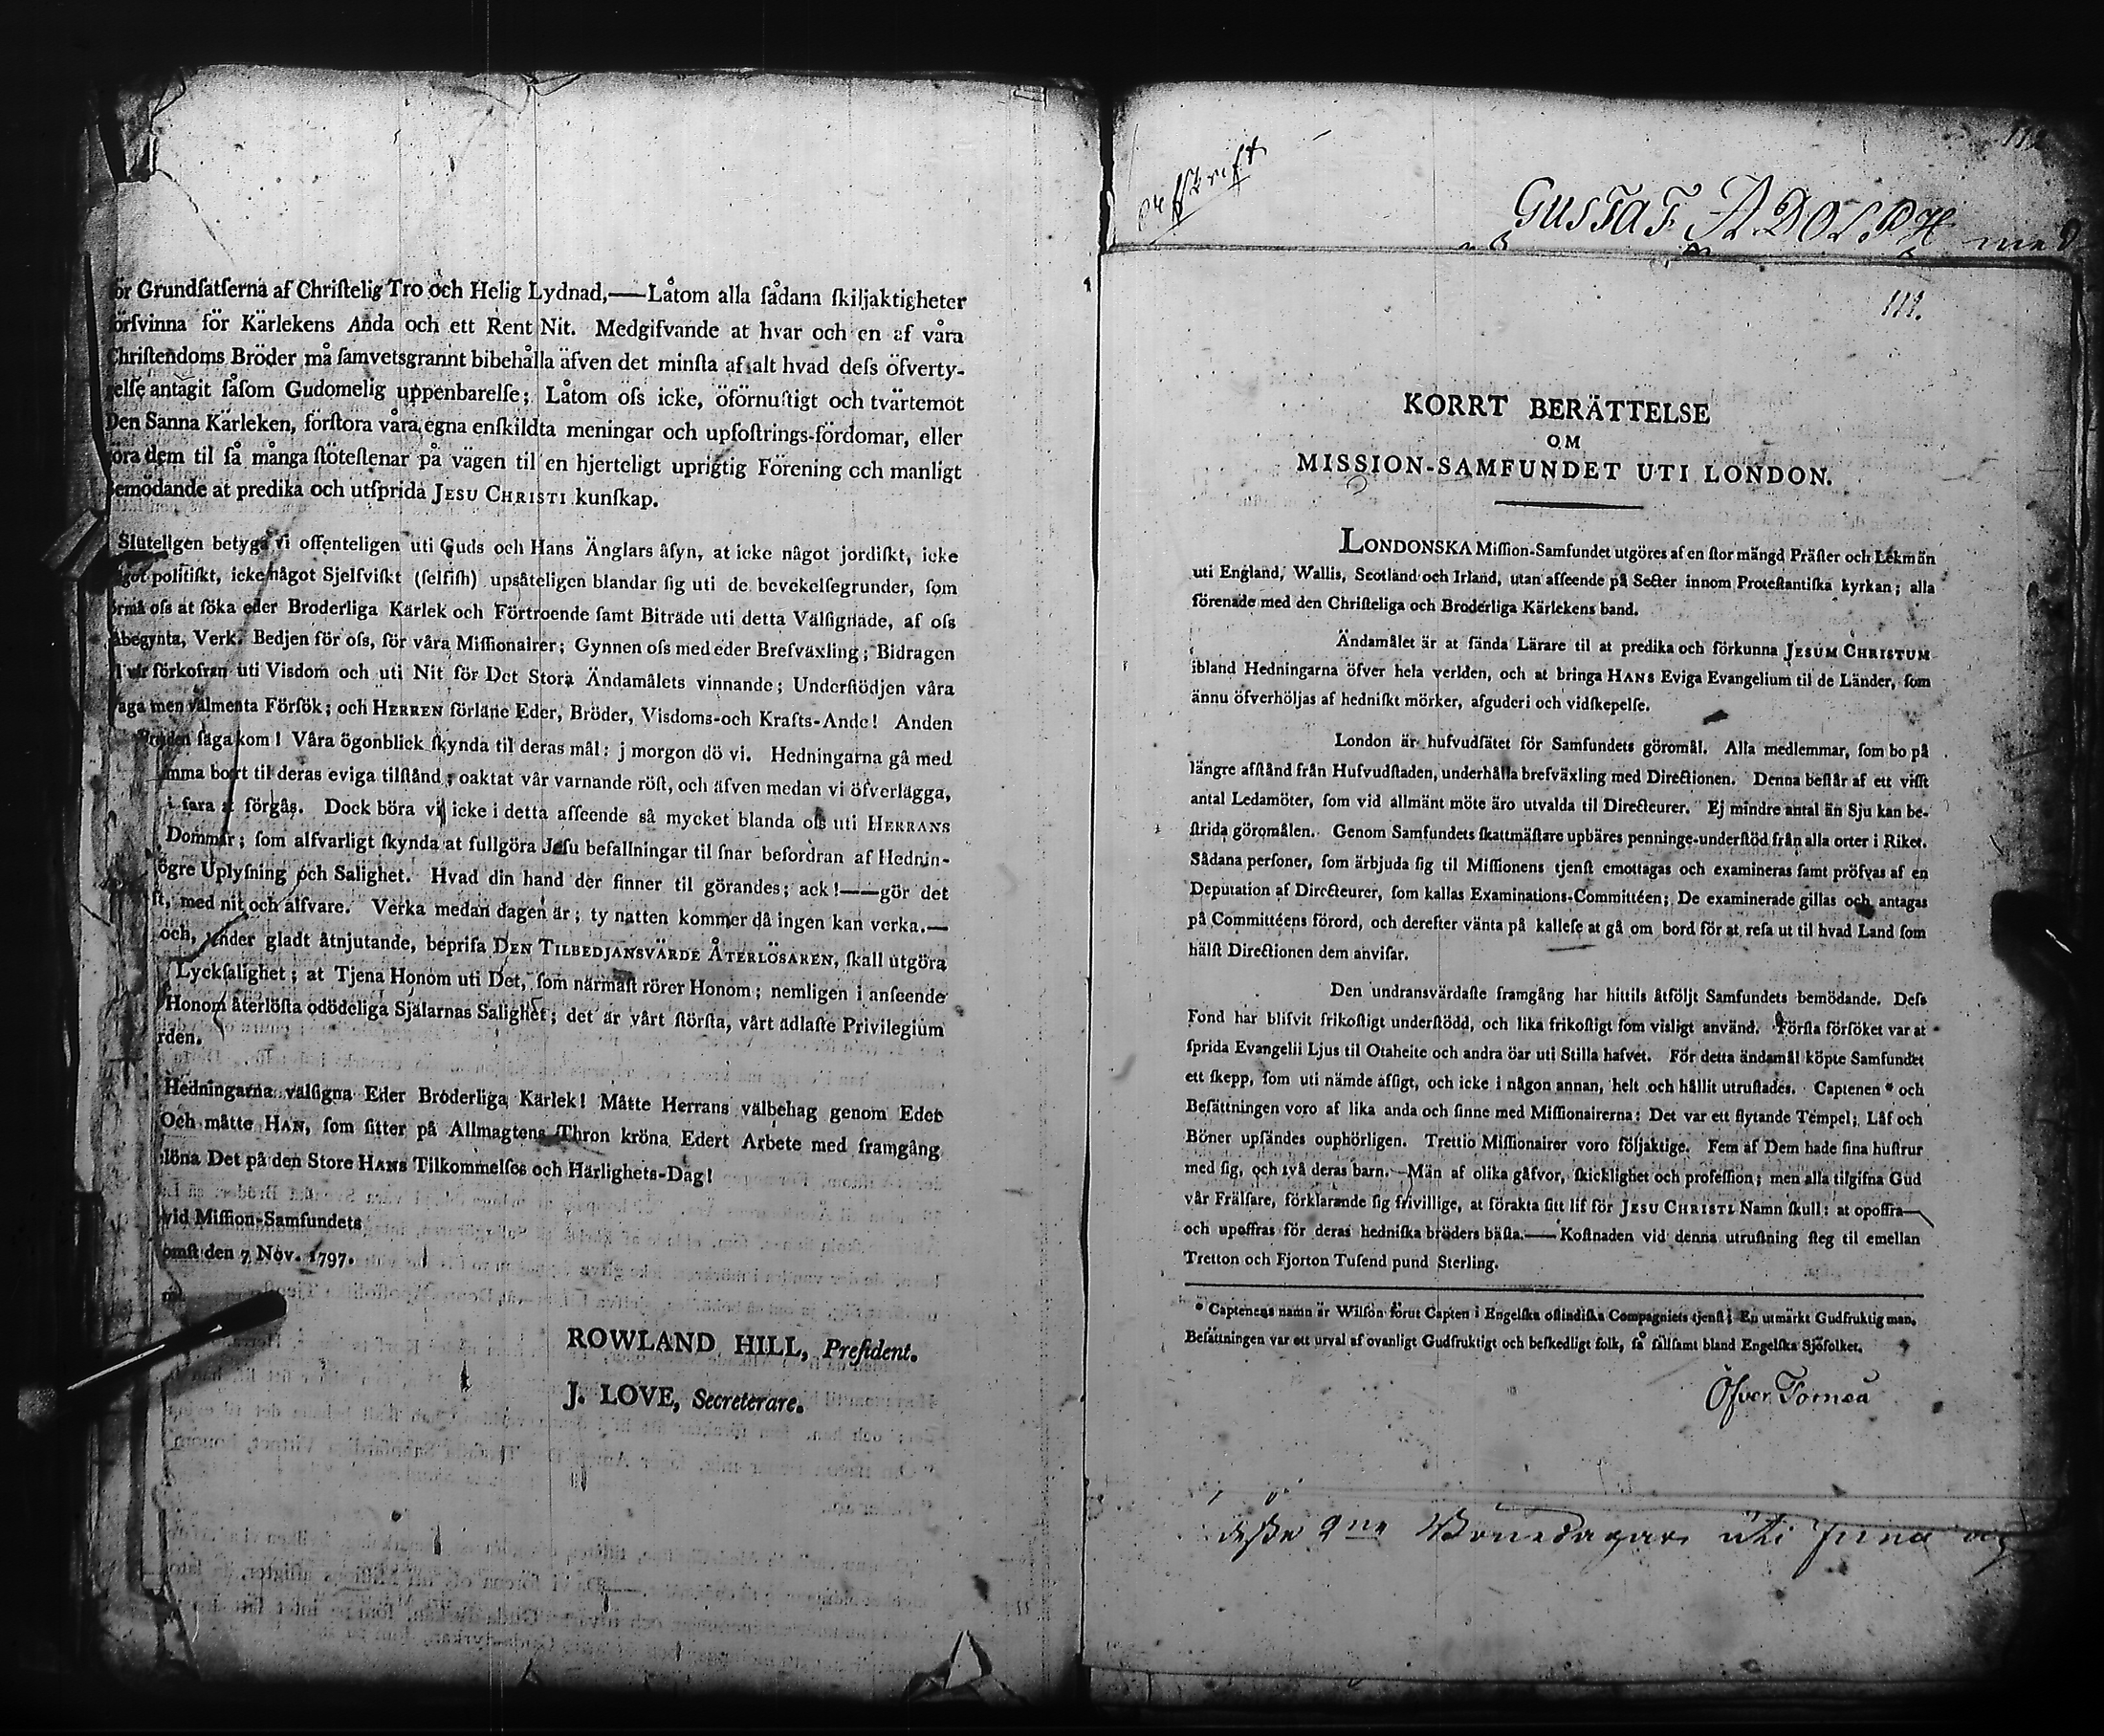 ör Grundſatſerna af Chriſtelig Tro och Helig Lydnad,——Låtom alla ſådana ſkiljaktigheter
örſvinna för Kärlekens Anda och ett Rent Nit. Medgifvande at hvar och en af våra
Chriſtendoms Bröder må ſamvetsgrannt bibehålla äfven det minſta af alt hvad deſs öfverty-
elſe antagit ſåſom Gudomelig uppenbarelſe; Låtom oſs icke, oförnuftigt och tvärtemot
Den Sanna Kärleken, förſtora våra egna enſkildta meningar och upfoſtrings-fördomar, eller
öra dem til ſå många ſtöteſtenar på vägen til en hjerteligt uprigtig Förening och manligt
emödande at predika och utſprida JESU CHRISTI kunſkap.
Sluteligen betyga vi offenteligen uti Guds och Hans Änglars åſyn, at icke något jordiſkt, icke
ågot politiſkt, icke något Sjelfviſkt (ſelfiſh) upſåteligen blandar ſig uti de bevekelſegrunder, ſom
örmå oſs at ſöka eder Broderliga Kärlek och Förtroende ſamt Biträde uti detta Välſignade, af oſs
åbegynta, Verk. Bedjen för oſs, för våra Miſſionairer; Gynnen oſs med eder Brefväxling; Bidragen
l vår förkofran uti Visdom och uti Nit för Det Stora Ändamålets vinnande; Underſtödjen våra
vaga men välmenta Förſök; och HERREN förläne Eder, Bröder, Visdoms-och Krafts-Ande! Anden
Bruden ſäga kom! Våra ögonblick ſkynda til deras mål: j morgon dö vi. Hedningarna gå med
amma bort til deras eviga tilſtånd; oaktat vår varnande röſt, och äfven medan vi öfverlägga,
i fara at förgås. Dock böra vi icke i detta aſſeende ſå mycket blanda oſs uti HERRANS
Dommar; ſom alfvarligt ſkynda at fullgöra Jeſu befallningar til ſnar befordran af Hednin-
ögre Uplyſning och Salighet. Hvad din hand der finner til görandes; ack!——gör det
ſt, med nit och alfvare. Verka medan dagen är; ty natten kommer då ingen kan verka.—
och, under gladt åtnjutande, bepriſa DEN TILBEDJANSVÄRDE ÅTERLÖSAREN, ſkall utgöra
Lyckſalighet; at Tjena Honom uti Det, ſom närmaſt rörer Honom; nemligen i anſeende
Honom återlöſta odödeliga Själarnas Salighet; det är vårt ſtörſta, vårt ädlaſte Privilegium
rden.
Hedningarna välſigna Eder Broderliga Kärlek! Måtte Herrans välbehag genom Eder
Och måtte HAN, ſom ſitter på Allmagtens Thron kröna Edert Arbete med framgång
löna Det på den Store HANS Tilkommelſes och Härlighets-Dag!
vid Miſſion-Samfundets
omſt den 7 Nov. 1797.
ROWLAND HILL, Preſident.
J. LOVE, Secreterare.
Afſkrift
GUSTAF ADOLPH med
111.
KORRT BERÄTTELSE
OM
MISSION-SAMFUNDET UTI LONDON.
LONDONSKA Miſſion-Samfundet utgöres af en ſtor mängd Präſter och Lekmän
uti England, Wallis, Scotland och Irland, utan aſſeende på Secter innom Proteſtantiſka kyrkan; alla
förenade med den Chriſteliga och Broderliga Kärlekens band.
Ändamålet är at ſända Lärare til at predika och förkunna JESUM CHRISTUM
ibland Hedningarna öfver hela verlden, och at bringa HANS Eviga Evangelium til de Länder, ſom
ännu öfverhöljas af hedniſkt mörker, afguderi och vidſkepelſe.
London är hufvudſätet för Samfundets göromål. Alla medlemmar, ſom bo på
längre afſtånd från Hufvudſtaden, underhålla brefväxling med Directionen. Denna beſtår af ett viſſt
antal Ledamöter, ſom vid allmänt möte äro utvalda til Directeurer. Ej mindre antal än Sju kan be-
ſtrida göromålen. Genom Samfundets ſkattmäſtare upbäres penninge-underſtöd från alla orter i Riket.
Sådana perſoner, ſom ärbjuda ſig til Miſſionens tjenſt emottagas och examineras ſamt pröfvas af en
Deputation af Directeurer, ſom kallas Examinations-Committéen; De examinerade gillas och antagas
på Committéens förord, och derefter vänta på kallelſe at gå om bord för at reſa ut til hvad Land ſom
hälſt Directionen dem anviſar.
Den undransvärdaſte framgång har hittils åtföljt Samfundets bemödande. Deſs
Fond har blifvit frikoſtigt underſtödd, och lika frikoſtigt ſom visligt använd. Förſta förſöket var at
ſprida Evangelii Ljus til Otaheite och andra öar uti Stilla hafvet. För detta ändamål köpte Samfundet
ett ſkepp, ſom uti nämde afſigt, och icke i någon annan, helt och hållit utruſtades. Captenen * och
Beſättningen voro af lika anda och ſinne med Miſſionairerna: Det var ett flytande Tempel; Låf och
Böner upſändes ouphörligen. Trettio Miſſionairer voro följaktige. Fem af Dem hade ſina huſtrur
med ſig, och två deras barn.—Män af olika gåfvor, ſkicklighet och profeſſion; men alla tilgifna Gud
vår Frälſare, förklarande ſig frivillige, at förakta ſitt lif för JESU CHRISTI Namn ſkull: at opoffra—
och upoffras för deras hedniſka bröders bäſta.—— Koſtnaden vid denna utruſtning ſteg til emellan
Tretton och Fjorton Tuſend pund Sterling.
* Captenens namn är Wilſon förut Capten i Engelſka oſtindiſka Compagniets tjenſt; En utmärkt Gudfruktig man.
Beſättningen var ett urval af ovanligt Gudfruktigt och beſkedligt folk, ſå ſällſamt bland Engelſka Sjöfolket.
Öfver Torneå
deſse 2ne Bönedagar uti